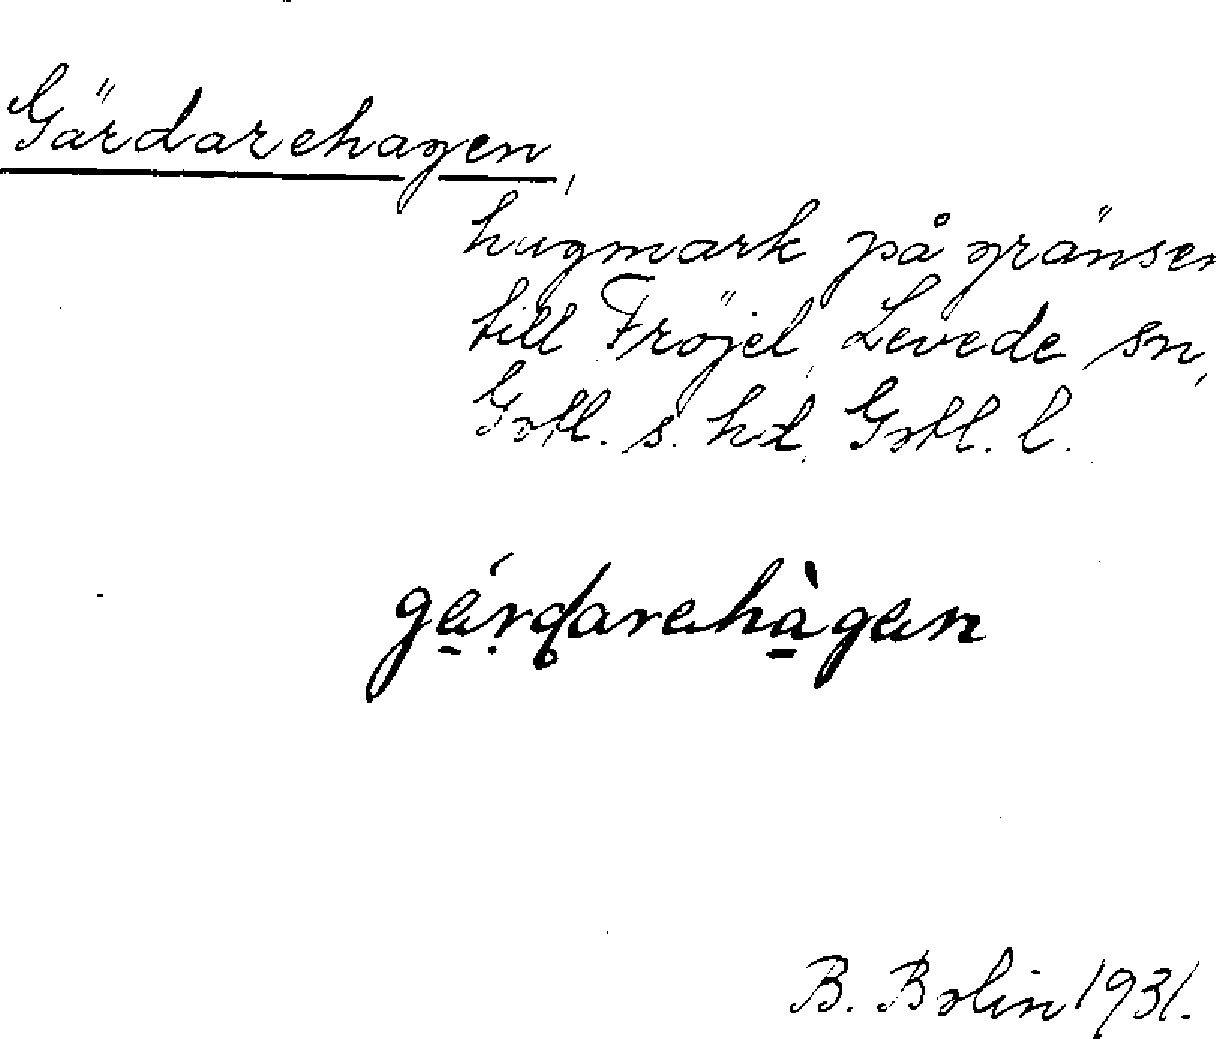 Gärdarehagen,
hugmark på gränsen
till Fröjel, Levede sn,
Gotl. s. hd, Gotl. l.
gä́rdarehàgen
B. Bolin 1931.